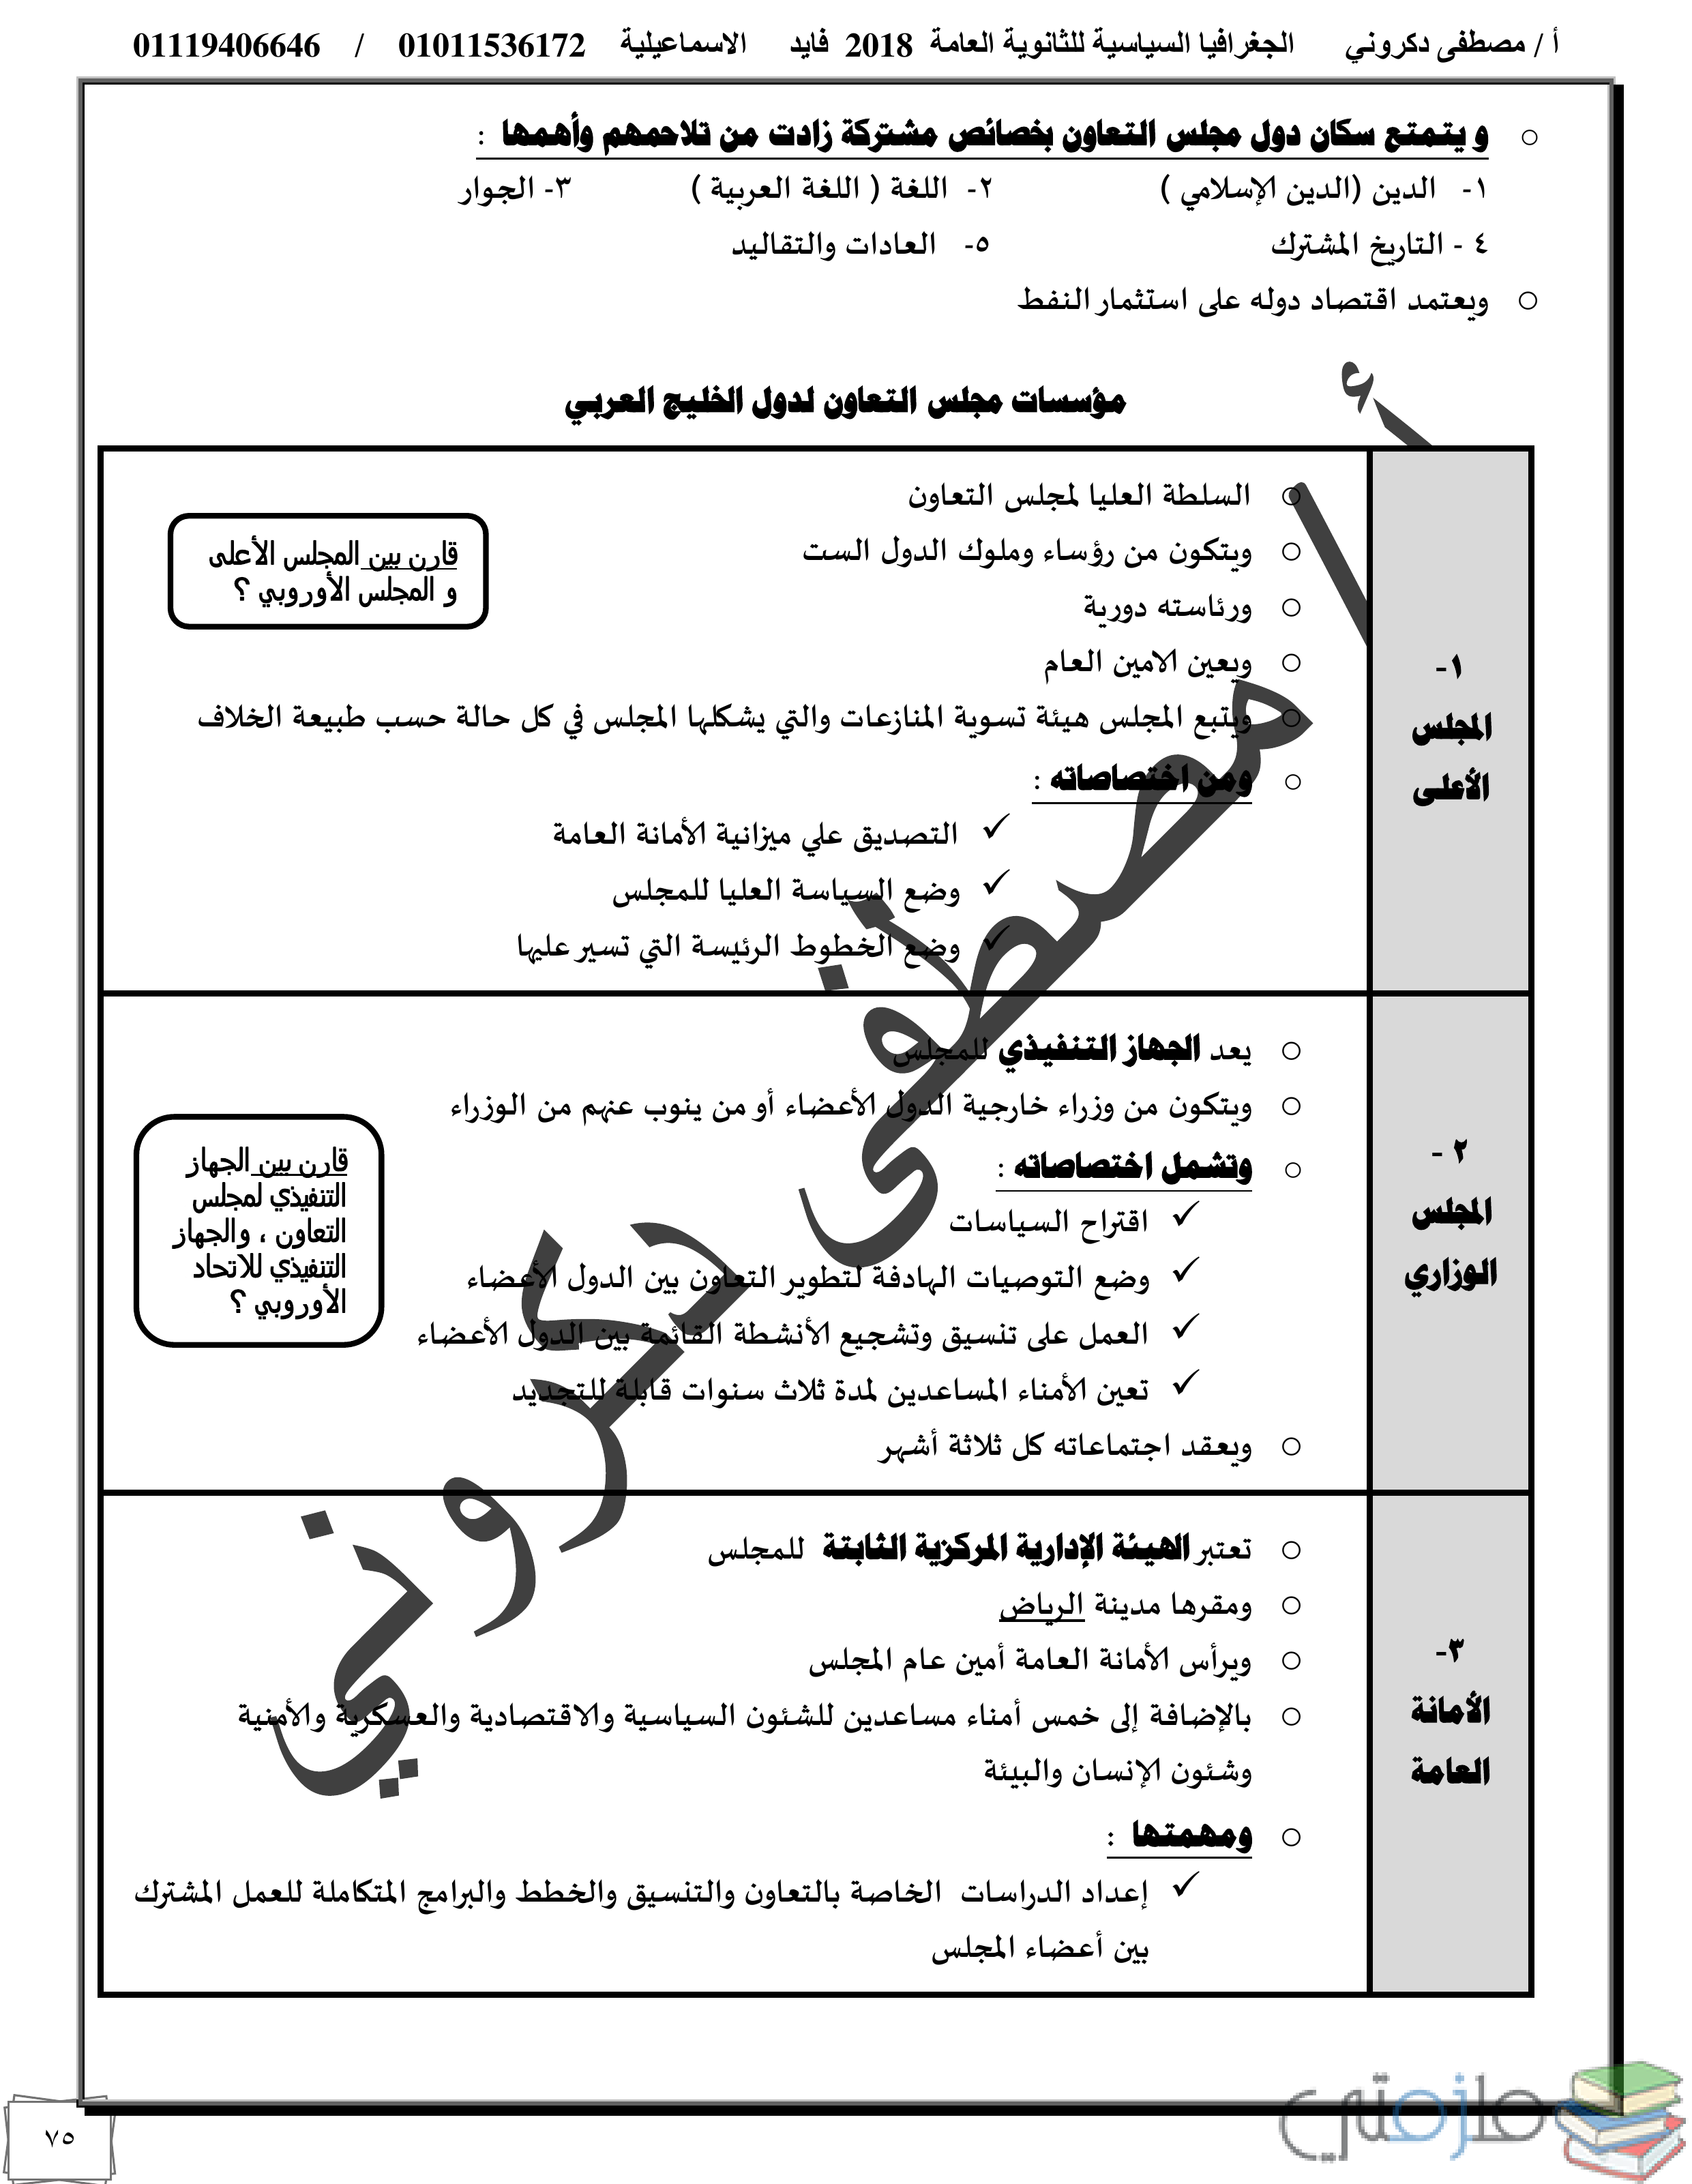 أ / مصطفى دكروني الجغرافيا السياسية للثانوية العامة 2018 فايد الاسماعيلية 01011536172 / 01119406646
○ و يتمتع سكان دول مجلس التعاون بخصائص مشتركة زادت من تلاحمهم وأهمها :
١- الدين (الدين الإسلامي ) ٢- اللغة ( اللغة العربية ) ٣- الجوار
٤ - التاريخ المشترك ٥- العادات والتقاليد
○ ويعتمد اقتصاد دوله على استثمار النفط
مؤسسات مجلس التعاون لدول الخليج العربي
١-
المجلس
الأعلى
○ السلطة العليا لمجلس التعاون
○ ويتكون من رؤساء وملوك الدول الست
○ ورئاسته دورية
○ ويعين الامين العام
○ ويتبع المجلس هيئة تسوية المنازعات والتي يشكلها المجلس في كل حالة حسب طبيعة الخلاف
○ ومن اختصاصاته :
✓ التصديق علي ميزانية الأمانة العامة
✓ وضع السياسة العليا للمجلس
✓ وضع الخطوط الرئيسة التي تسير عليها
قارن بين المجلس الأعلى
و المجلس الأوروبي ؟
٢ -
المجلس
الوزاري
○ يعد الجهاز التنفيذي للمجلس
○ ويتكون من وزراء خارجية الدول الأعضاء أو من ينوب عنهم من الوزراء
○ وتشمل اختصاصاته :
✓ اقتراح السياسات
✓ وضع التوصيات الهادفة لتطوير التعاون بين الدول الأعضاء
✓ العمل على تنسيق وتشجيع الأنشطة القائمة بين الدول الأعضاء
✓ تعين الأمناء المساعدين لمدة ثلاث سنوات قابلة للتجديد
○ ويعقد اجتماعاته كل ثلاثة أشهر
قارن بين الجهاز
التنفيذي لمجلس
التعاون ، والجهاز
التنفيذي للاتحاد
الأوروبي ؟
٣-
الأمانة
العامة
○ تعتبر الهيئة الإدارية المركزية الثابتة للمجلس
○ ومقرها مدينة الرياض
○ ويرأس الأمانة العامة أمين عام المجلس
○ بالإضافة إلى خمس أمناء مساعدين للشئون السياسية والاقتصادية والعسكرية والأمنية
وشئون الإنسان والبيئة
○ ومهمتها :
✓ إعداد الدراسات الخاصة بالتعاون والتنسيق والخطط والبرامج المتكاملة للعمل المشترك
بين أعضاء المجلس
أ / مصطفى دكروني
٧٥
ملزمتي